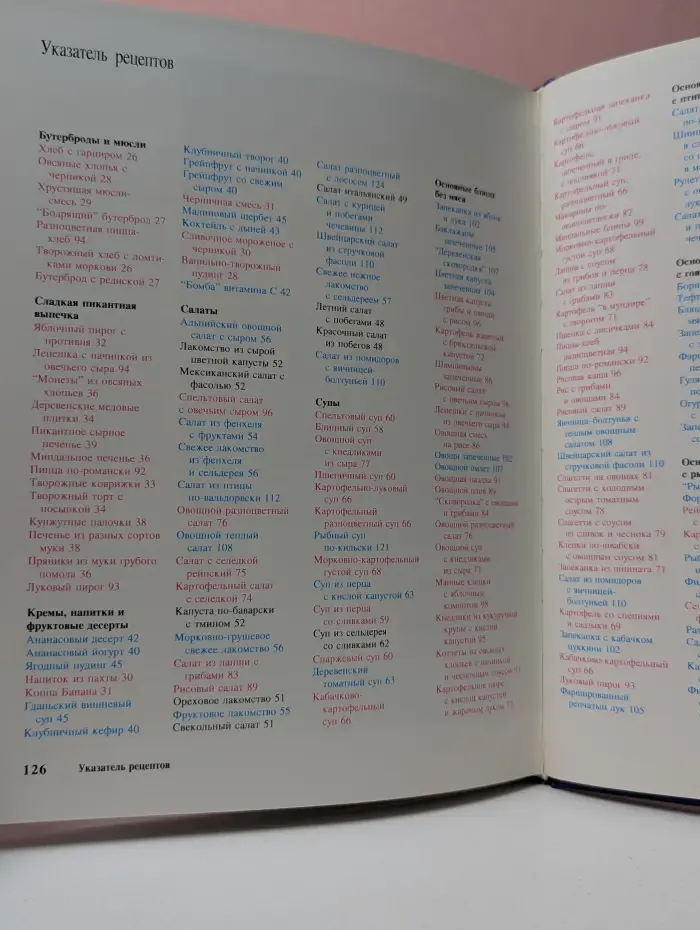 Указатель рецептов
Бутерброды и мюсли
Хлеб с гарниром 26
Овсяные хлопья с
черникой 28
Хрустящая мюсли-
смесь 29
“Бодрящий” бутерброд 27
Разноцветная пицца-
хлеб 94
Творожный хлеб с ломти-
ками моркови 26
Бутерброд с редиской 27
Сладкая пикантная
выпечка
Яблочный пирог с
противня 32
Лепешка с начинкой из
овечьего сыра 94
“Монеты” из овсяных
хлопьев 36
Деревенские медовые
плитки 34
Пикантное сырное
печенье 39
Миндальное печенье 36
Пицца по-романски 92
Творожные коврижки 33
Творожный торт с
посыпкой 34
Кунжутные палочки 38
Печенье из разных сортов
муки 38
Пряники из муки грубого
помола 36
Луковый пирог 93
Кремы, напитки и
фруктовые десерты
Ананасовый десерт 42
Ананасовый йогурт 40
Ягодный пудинг 45
Напиток из пахты 30
Коппа Банана 31
Гданьский вишневый
суп 45
Клубничный кефир 40
Клубничный творог 40
Грейпфрут с начинкой 40
Грейпфрут со свежим
сыром 40
Черничная смесь 31
Малиновый щербет 45
Коктейль с дыней 43
Сливочное мороженое с
черникой 30
Ванильно-творожный
пудинг 28
“Бомба” витамина С 42
Салаты
Альпийский овощной
салат с сыром 56
Лакомство из сырой
цветной капусты 52
Мексиканский салат с
фасолью 52
Спельтовый салат
с овечьим сыром 96
Салат из фенхеля
с фруктами 54
Свежее лакомство
из фенхеля
и сельдерея 56
Салат из птицы
по-вальдорвски 112
Овощной разноцветный
салат 76
Овощной теплый
салат 108
Салат с селедкой
рейнский 75
Картофельный салат
с селедкой 74
Капуста по-баварски
с тмином 52
Морковно-грушевое
свежее лакомство 56
Салат из лапши с
грибами 83
Рисовый салат 89
Ореховое лакомство 51
Фруктовое лакомство 55
Свекольный салат 51
Салат разноцветный
с лососем 124
Салат итальянский 49
Салат с курицей
и побегами
чечевицы 112
Швейцарский салат
из стручковой
фасоли 110
Свежее нежное
лакомство
с сельдереем 57
Летний салат
с побегами 48
Красочный салат
из побегов 48
Салат из помидоров
с яичницей-
болтуньей 110
Супы
Спельтовый суп 60
Блинный суп 58
Овощной суп
с кнедликами
из сыра 77
Пшеничный суп 60
Картофельно-луковый
суп 66
Картофельный
разноцветный суп 66
Рыбный суп
по-кильски 121
Морковно-картофельный
густой суп 68
Суп из перца
с кислой капустой 63
Суп из перца
со сливками 59
Суп из сельдерея
со сливками 62
Спаржевый суп 60
Деревенский
томатный суп 63
Кабачково-
картофельный
суп 66
Основные блюда
без мяса
Запеканка из яблок
и лука 102
Баклажаны
запеченные 105
“Деревенская
сковородка” 107
Цветная капуста
запеченная 104
Цветная капуста
грибы и овощи
с рисом 96
Картофель жареный
с брюссельской
капустой 72
Шампиньоны
запеченные 86
Рисовый салат
с овечьим сыром 96
Лепешки с начинкой
из овечьего сыра 94
Овощная смесь
на расе 86
Овощи запеченные 102
Овощной омлет 107
Овощная паэлья 91
Овощной плов 89
“Сковородка” с овощами
и грибами 84
Овощной разноцветный
салат 76
Овощной суп
с кнедликами
из сыра 77
Манные клецки
с яблочным
компотом 98
Кнедлики из кукурузной
крупы с кислой
капустой 95
Котлеты из овсяных
хлопьев с начинкой
Картофельное пюре
с кислой капустой
Картофельная запеканка
с сыром 71
Картофельно-луковый
суп 66
Картофель,
запеченный в гриде,
с половинкой 71
Картофельный суп,
разноцветный 66
Макароны по-
Миндальные блинты 99
Морковно-картофельный
густой суп 68
Лапша с соусом
из грибов и перца 78
Салат из лапши
с грибами 83
Картофель “в мундире”
с творогом 71
Пицца-хлеб
разноцветная 94
Пицца по-романски 92
Рисовая каша 96
Рис с грибами
и овощами 84
Рисовый салат 89
Яичница-болтунья с
теплым овощным
салатом 108
Швейцарский салат из
стручковой фасоли 110
Спагетти на овощах 81
Спагетти с холодным
острым томатным
соусом 78
Спагетти с соусом
из сливок и чеснока 79
Клецки по-швабски
с овощным соусом 81
Запеканка из шпината 71
Салат из помидоров
с яичницей-
болтуньей 110
Картофель со специями
и сальвия 69
Запеканка с кабачком
цуккини 102
Кабачково-картофельный
суп 66
Луковый пирог 93
Фаршированный
репчатый лук 105
126
Указатель рецептов